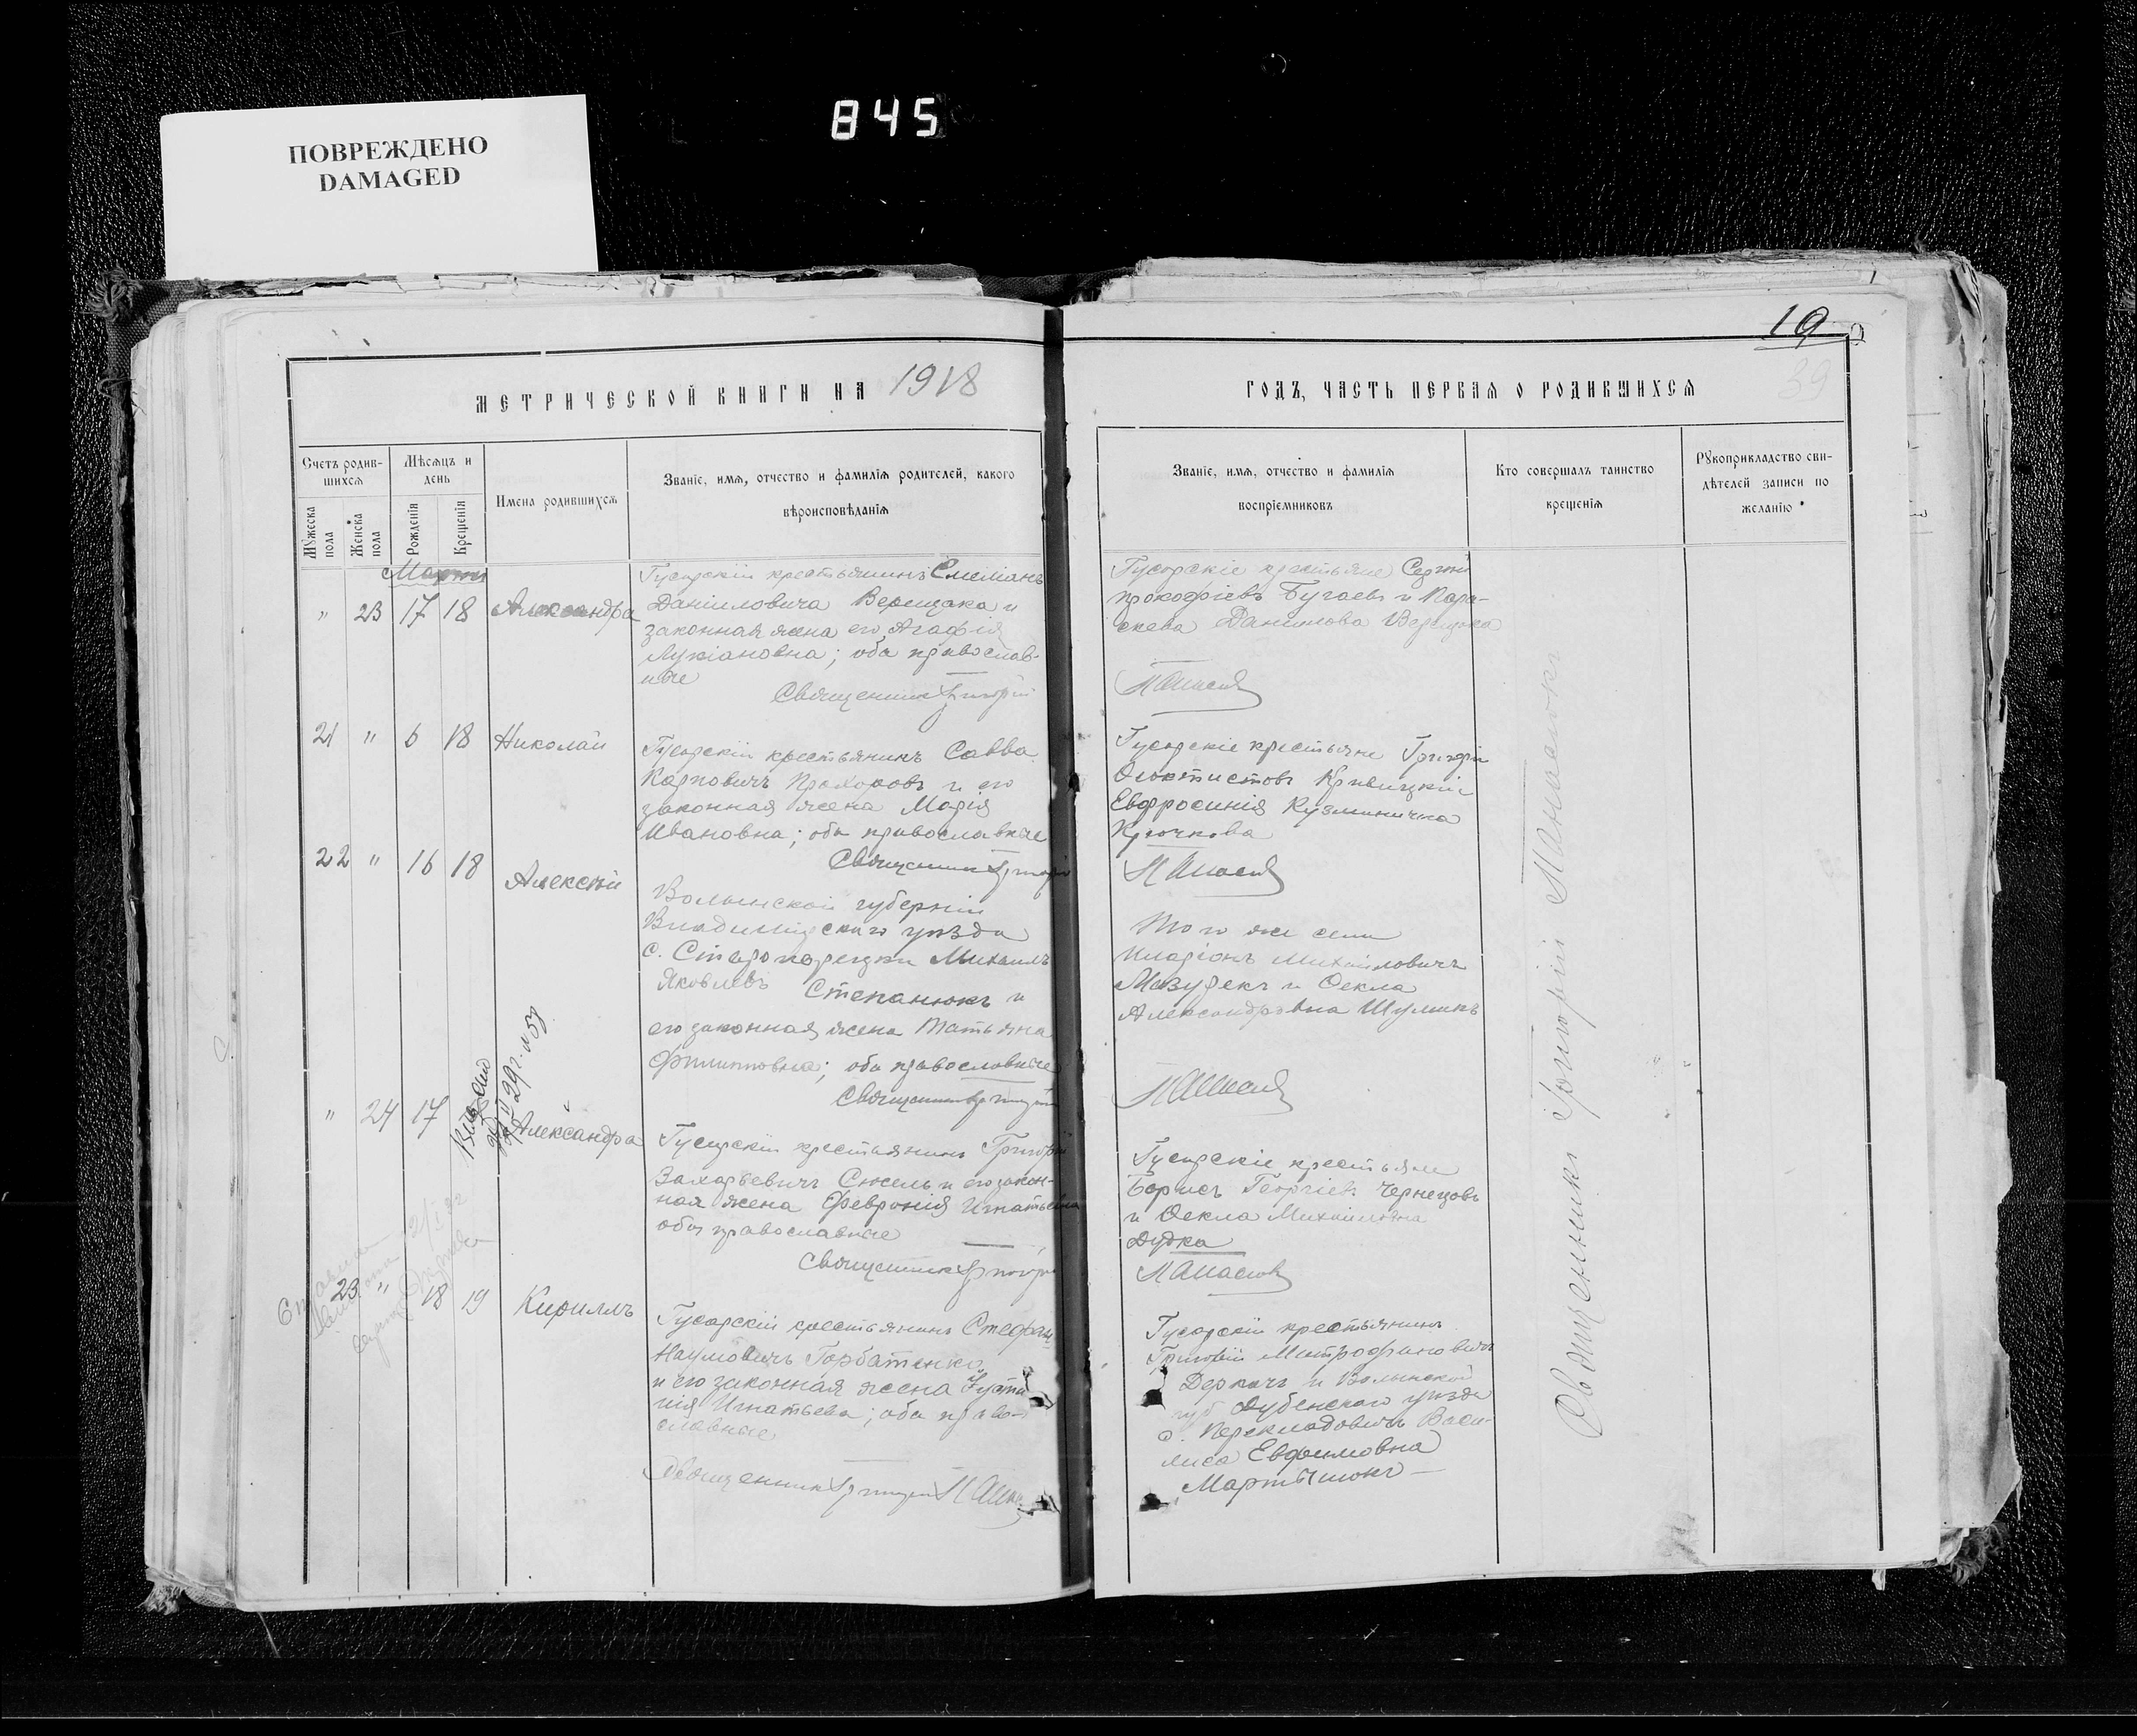 ПОВРЕЖДЕНО
DAMAGED
845
19
39
МЕТРИЧЕСКОЙ КНИГИ НА 1918
ГОДЪ, ЧАСТЬ ПЕРВАЯ О РОДИВШИХСЯ
Счетъ родив-
шихся
Мужеска пола
Женска пола
Мѣсяцъ и
день
Рожденія
Крещенія
Имена родившихся
Званіе, имя, отчество и фамилія родителей, какого
вѣроисповѣданія
Званіе, имя, отчество и фамилія
воспріемниковъ
Кто совершалъ таинство
крещенія
Рукоприкладство сви-
дѣтелей записи по
желанію
Мартъ
" 23 17 18 Александра
Гусарскій крестьянинъ Емеліанъ
Даниловича Верещака и
законная жена его Агафія
Лукіановна; оба православ-
ные
Священникъ Григорій
Гусарскіе крестьяне Сергій
Прокофіевъ Бугаевъ и Пара-
скева Данилова Верещака
21 " 6 18 Николай
Гусарскій крестьянинъ Савва
Карповичъ Прохоровъ и его
законная жена Марія
Ивановна; оба православные
Священникъ Григорій
Гусарскіе крестьяне Григорій
Феоктистовъ Кривицкій
Евфросинія Кузминична
Крючкова
22 " 16 18 Алексѣй
Волынской губерніи
Владимірскаго уѣзда
с. Михаилъ
Яковлевъ Степанюкъ и
его законная жена Татьяна
Филипповна; оба православные
Священникъ Григорій
Того же села
Иларіонъ Михайловичъ
Мазурекъ и Фекла
Александровна
" 24 17 Александра
Гусарскій крестьянинъ Григорій
Захарьевичъ и его закон-
ная жена Февронія Игнатьевна
оба православные
Священникъ Григорій
Гусарскіе крестьяне
Борисъ Георгіевъ Чернецовъ
и Фекла Михайловна
Дудка
23 " 18 19 Кириллъ
Гусарскій крестьянинъ Стефанъ
Наумовичъ Горбатенко
и его законная жена Усти-
нія Игнатьева; оба право-
славные
Священникъ Григорій
Гусарскій крестьянинъ
Григорій Митрофановичъ
Деркачъ и Волынской
губ. Дубенскаго уѣзда
с. Васи-
лиса Евфимовна
Мартынюкъ
Священникъ Григорій